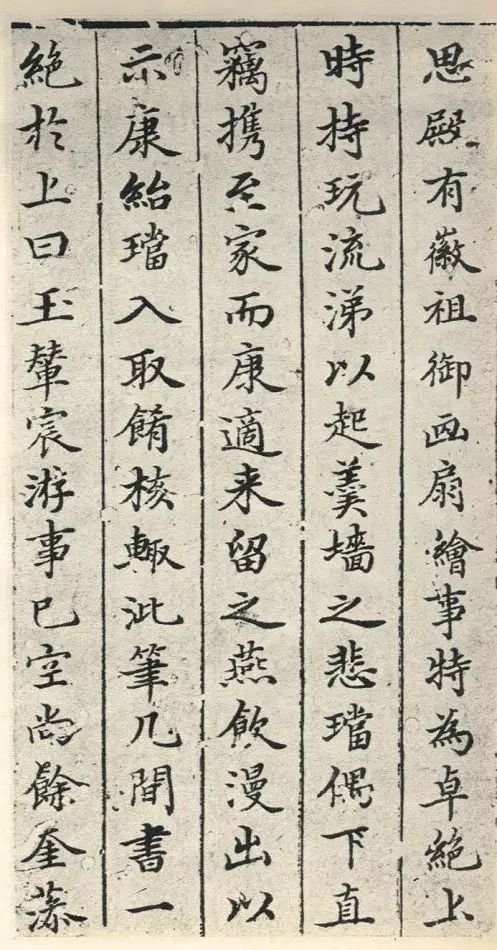 思殿有徽祖御画扇繪事特為卓絕上
時持玩流涕以起羹墻之悲璫偶下直
竊攜至家而康適来留之燕飲漫出以
示康紿璫入取餚核輙泚筆几間書一
絶於上曰玉輦宸游事已空尚餘奎藻